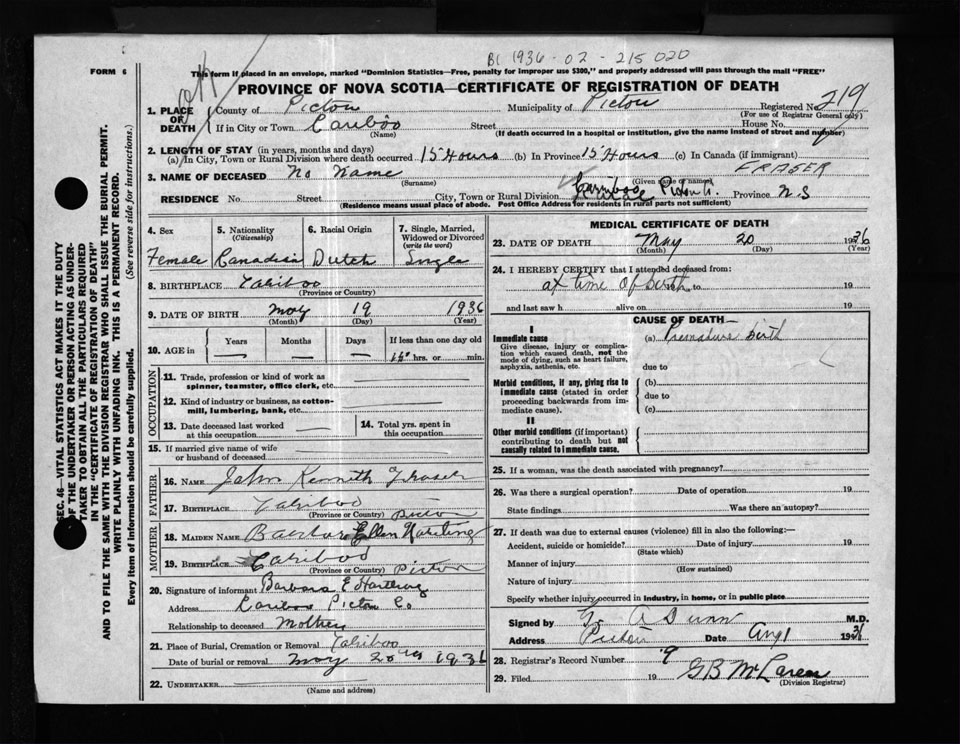 BC 1936-02-215020
FORM 6
This form if placed in an envelope, marked "Dominion Statistics—Free, penalty for improper use $300," and properly addressed will pass through the mail "FREE"
PROVINCE OF NOVA SCOTIA—CERTIFICATE OF REGISTRATION OF DEATH
1. PLACE OF DEATH
County of Pictou Municipality of Pictou Registered No. 219
(For use of Registrar General only)
If in City or Town Cariboo Street House No.
(Name) (If death occurred in a hospital or institution, give the name instead of street and number)
2. LENGTH OF STAY (in years, months and days)
(a) In City, Town or Rural Division where death occurred 15 Hours (b) In Province 15 Hours (c) In Canada (if immigrant)
FRASER
3. NAME OF DECEASED No Name
(Surname) (Given name or names)
RESIDENCE No. Street City, Town or Rural Division Carriboo Rural Pictou Province N.S
(Residence means usual place of abode. Post Office Address for residents in rural parts not sufficient)
4. Sex 5. Nationality (Citizenship) 6. Racial Origin 7. Single, Married, Widowed or Divorced (write the word)
Female Canadian Dutch Single
8. BIRTHPLACE Cariboo
(Province or Country)
9. DATE OF BIRTH May 19 1936
(Month) (Day) (Year)
10. AGE in Years Months Days If less than one day old
hrs. or min.
OCCUPATION
11. Trade, profession or kind of work as spinner, teamster, office clerk, etc.
12. Kind of industry or business, as cotton-mill, lumbering, bank, etc.
13. Date deceased last worked at this occupation
14. Total yrs. spent in this occupation
15. If married give name of wife or husband of deceased
FATHER
16. NAME John Kenneth Fraser
17. BIRTHPLACE Cariboo Pictou
(Province or Country)
MOTHER
18. MAIDEN NAME Barbara Ellen Harting
19. BIRTHPLACE Cariboo Pictou
(Province or Country)
20. Signature of informant Barbara E Harting
Address Cariboo Pictou Co
Relationship to deceased Mother
21. Place of Burial, Cremation or Removal Cariboo
Date of burial or removal May 20th 1936
22. UNDERTAKER
(Name and address)
MEDICAL CERTIFICATE OF DEATH
23. DATE OF DEATH May 20 1936
(Month) (Day) (Year)
24. I HEREBY CERTIFY that I attended deceased from:
at time of birth to 19
and last saw h alive on 19
CAUSE OF DEATH
I
Immediate cause (a) Premature birth
Give disease, injury or complication which caused death, not the mode of dying, such as heart failure, asphyxia, asthenia, etc.
due to
Morbid conditions, if any, giving rise to immediate cause (stated in order proceeding backwards from immediate cause).
(b)
due to
(c)
II
Other morbid conditions (if important) contributing to death but not causally related to immediate cause.
25. If a woman, was the death associated with pregnancy?
26. Was there a surgical operation? Date of operation 19
State findings Was there an autopsy?
27. If death was due to external causes (violence) fill in also the following:—
Accident, suicide or homicide? Date of injury 19
(State which)
Manner of injury
(How sustained)
Nature of injury
Specify whether injury occurred in industry, in home, or in public place
Signed by G A Dunn M.D.
Address Pictou Date Aug 1 1936
28. Registrar's Record Number 9
29. Filed 19 G B McLaren
(Division Registrar)
SEC. 46—VITAL STATISTICS ACT MAKES IT THE DUTY
OF THE UNDERTAKER OR PERSON ACTING AS UNDER-
TAKER TO OBTAIN ALL THE PARTICULARS REQUIRED
IN THE "CERTIFICATE OF REGISTRATION OF DEATH"
AND TO FILE THE SAME WITH THE DIVISION REGISTRAR WHO SHALL ISSUE THE BURIAL PERMIT.
WRITE PLAINLY WITH UNFADING INK. THIS IS A PERMANENT RECORD.
Every item of information should be carefully supplied. (See reverse side for instructions.)